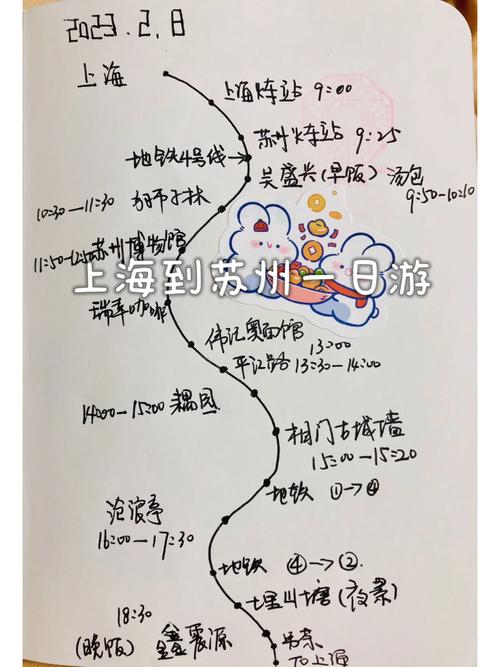 2023.2.8
上海
上海火车站 9:00
苏州火车站 9:25
地铁4号线
吴盛兴(早饭) 汤包
9:50-10:10
10:30-11:30 狮子林
苏州博物馆
上海到苏州一日游
瑞幸咖啡
伟记奥面馆
13:00
平江路 13:30-14:00
14:00-15:00 耦园
相门古城墙
15:00-15:20
地铁 ①→④
沧浪亭
16:00-17:30
地铁 ④→②
七里山塘(夜景)
18:30
(晚饭) 鑫震源
TO上海